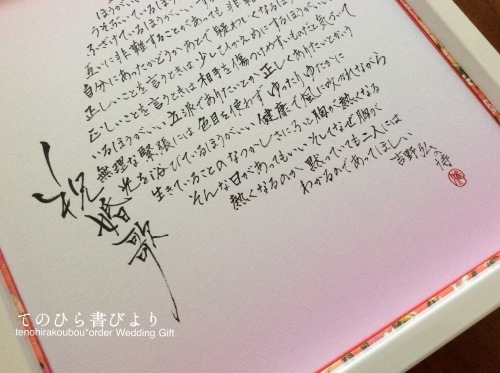 ほうがいい
うそぶいているほうがいい
ふざけているほうがいい
互いに非難することがあっても 非難
自分にあったかどうか あとで疑わしくなるほう
正しいことを言うときは 少しひかえめにするほうがいい
正しいことを言うときは 相手を傷つけやすいものだと気づいて
いるほうがいい 立派でありたいとか 正しくありたいとかいう
無理な緊張には 色目を使わず ゆったり ゆたかに
光を浴びているほうがいい 健康で 風に吹かれながら
生きていることのなつかしさに ふと 胸が熱くなる
そんな日があってもいい そしてなぜ胸が
熱くなるのか 黙っていても 二人には
わかるのであってほしい
吉野弘の詩
祝婚歌
てのひら書びより
tenohirakoubou*order Wedding Gift